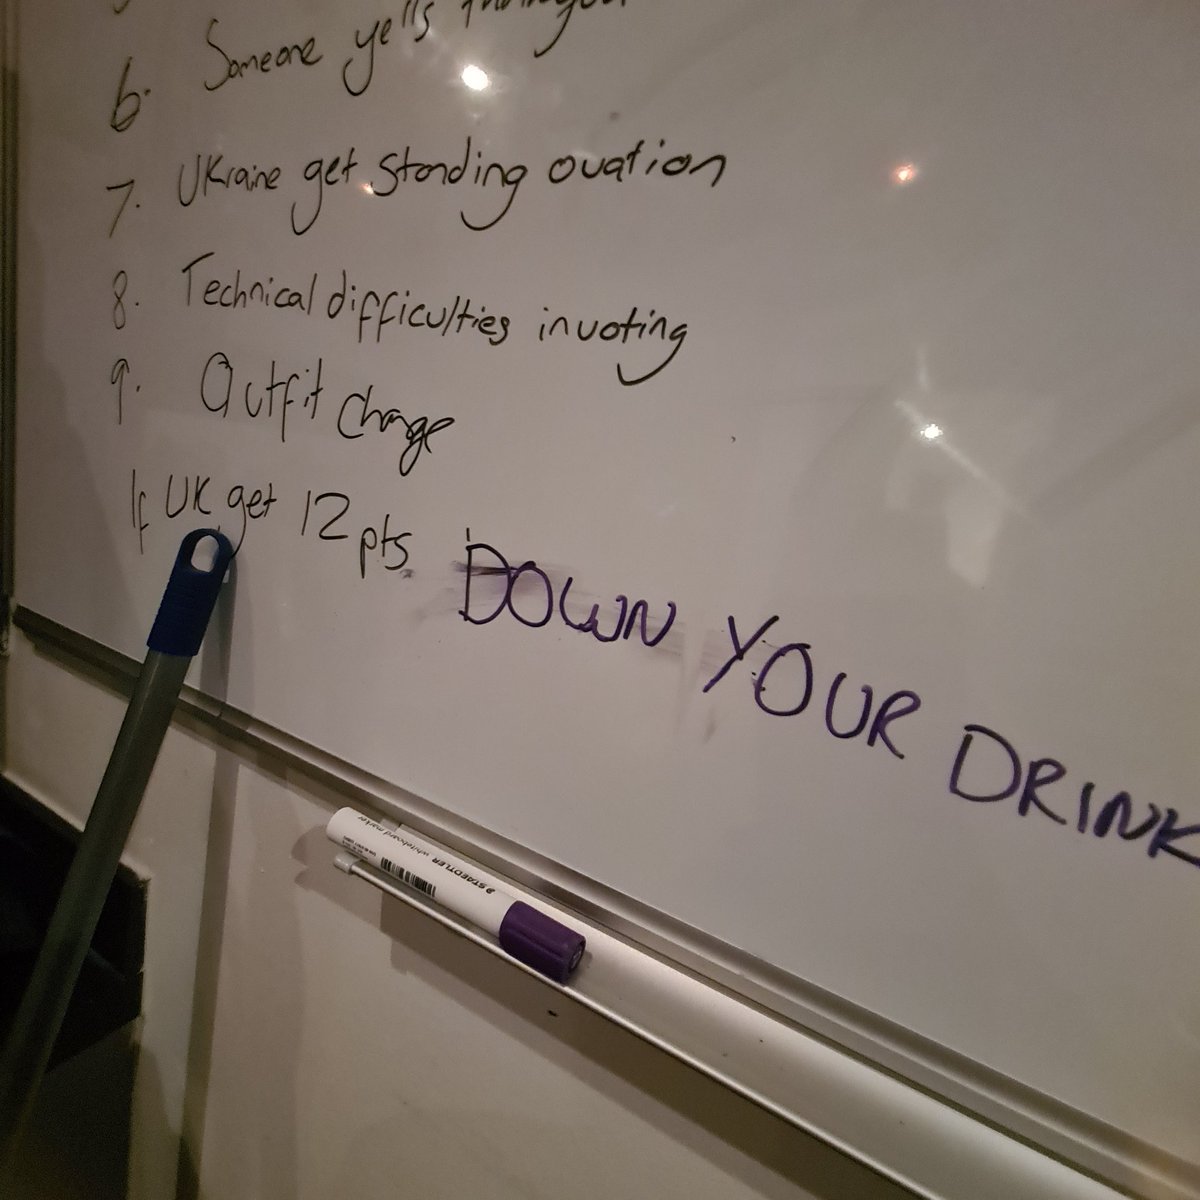 6. Someone yells
7. Ukraine get standing ovation
8. Technical difficulties in voting
9. Outfit change
If UK get 12 pts. DOWN YOUR DRINK
STAEDTLER whiteboard marker